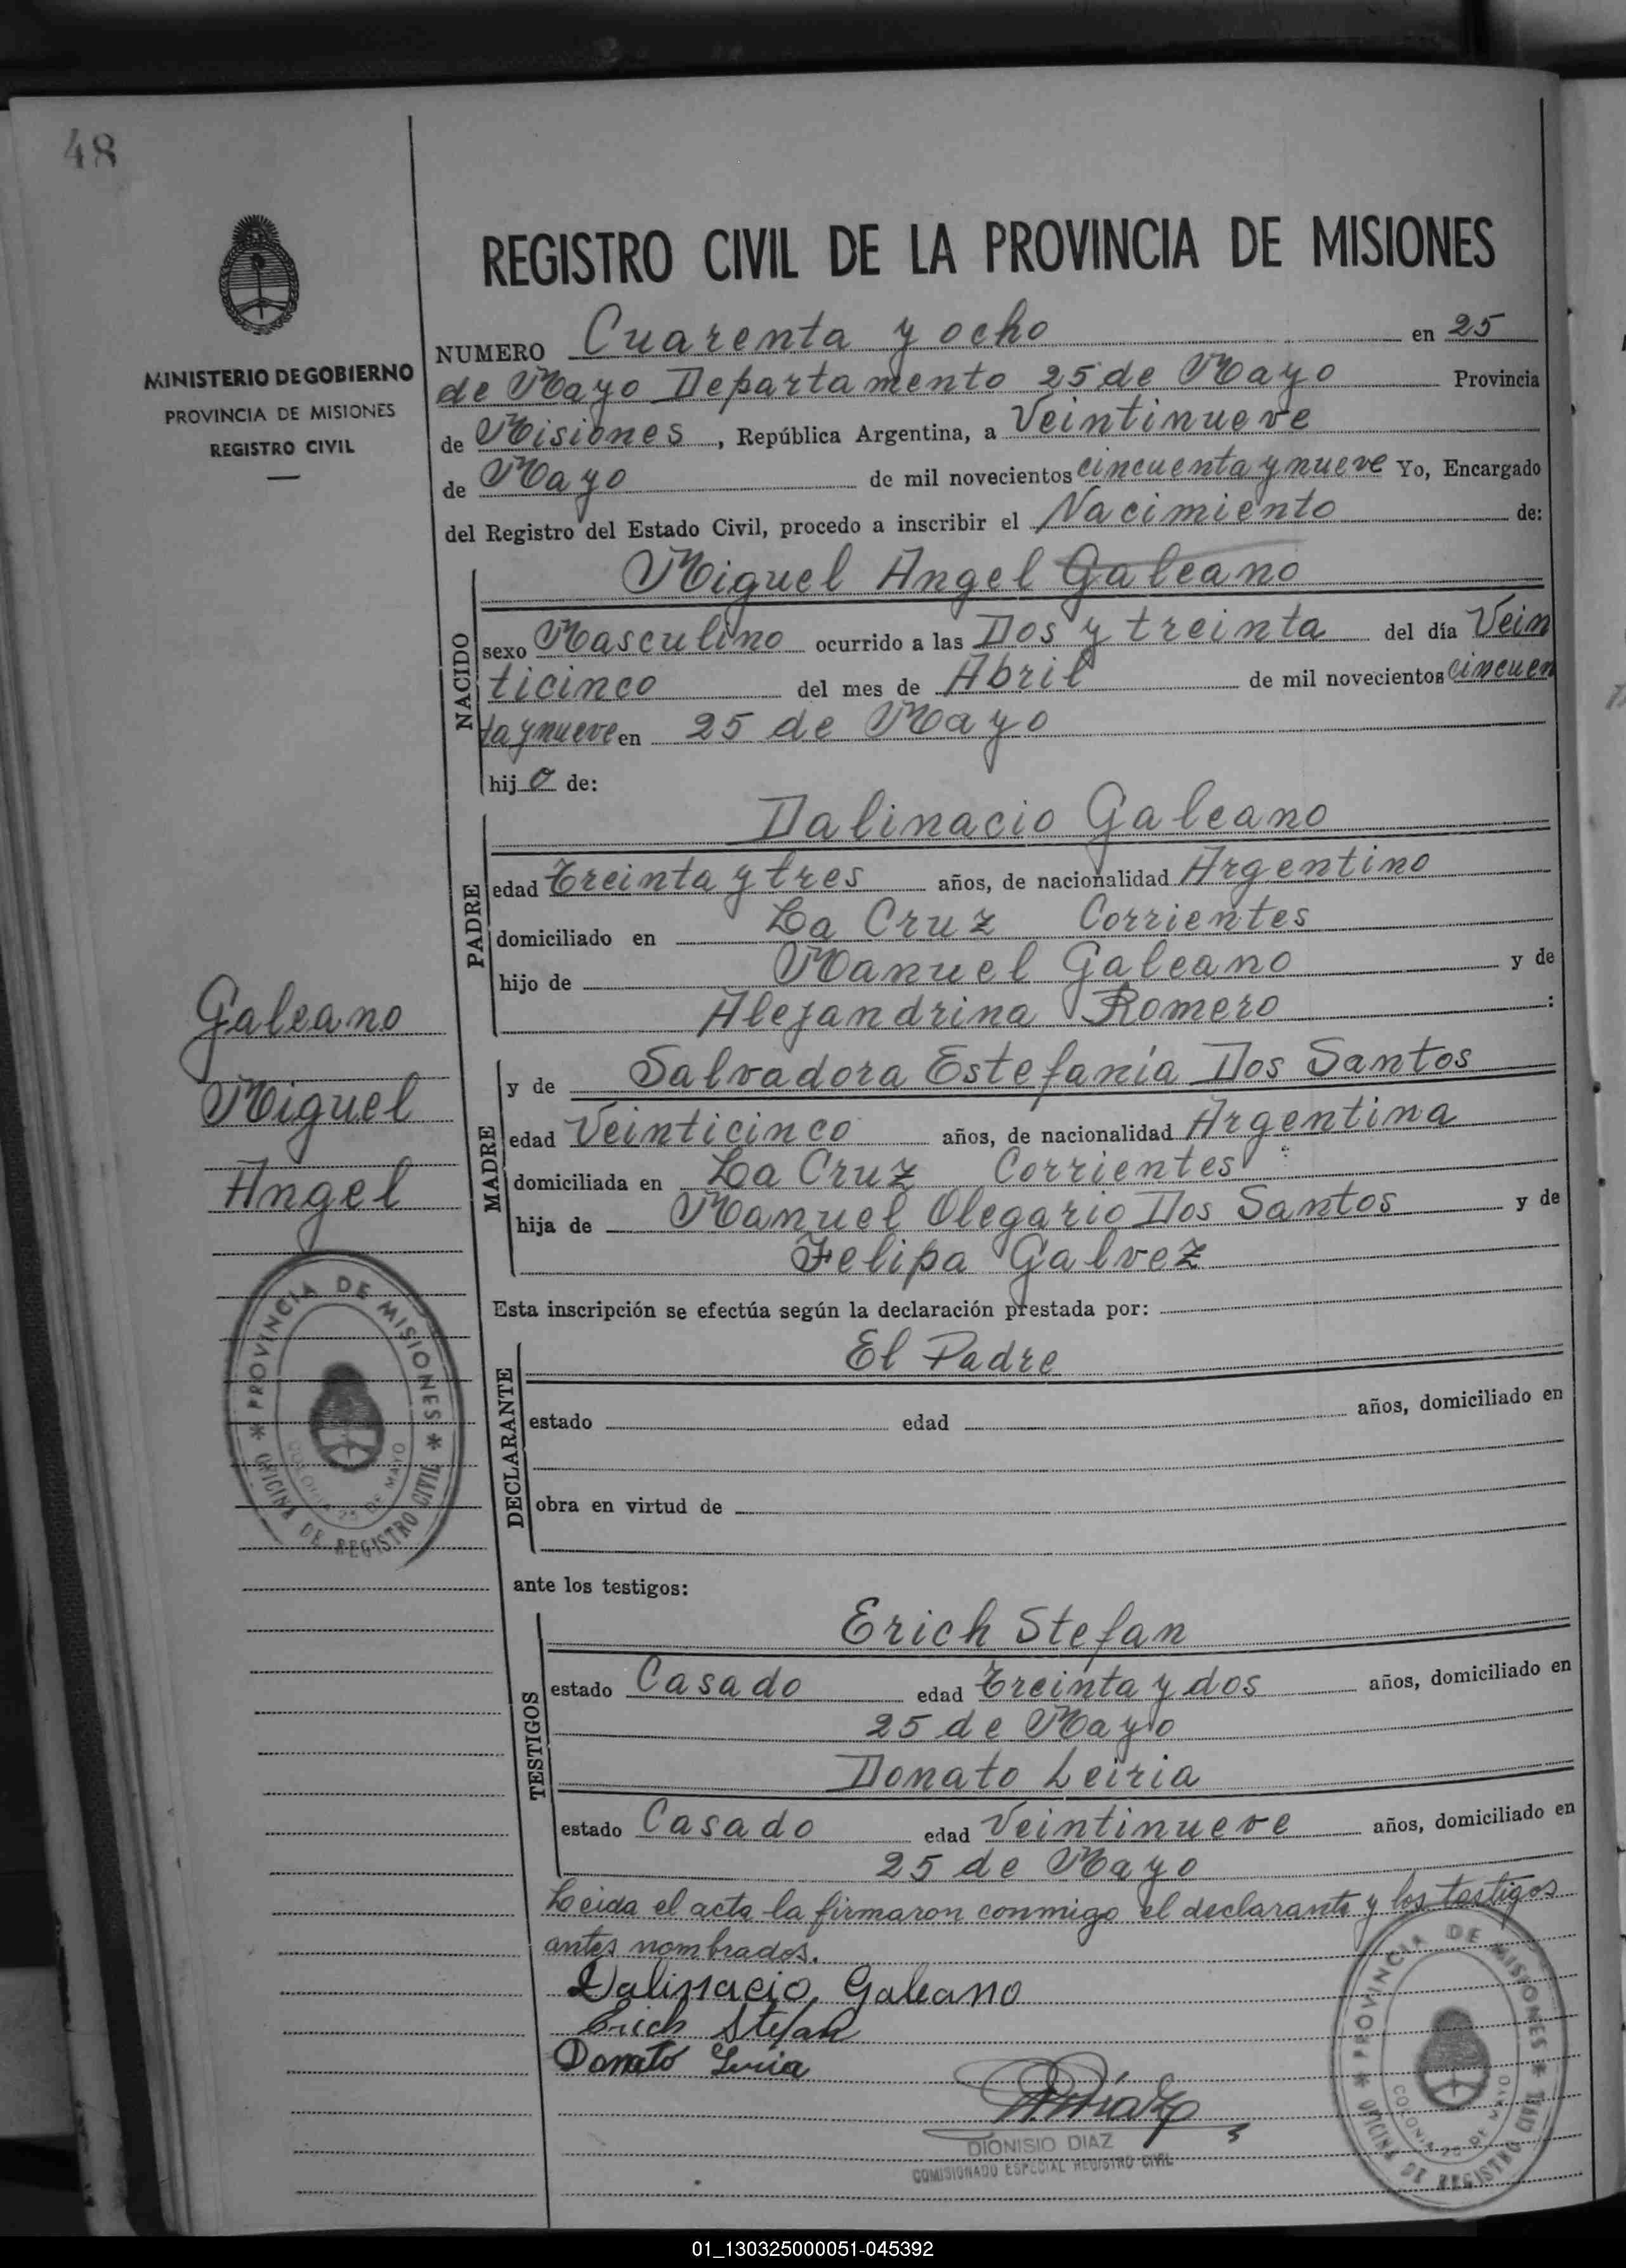 48
MINISTERIO DE GOBIERNO
PROVINCIA DE MISIONES
REGISTRO CIVIL
REGISTRO CIVIL DE LA PROVINCIA DE MISIONES
NUMERO Cuarenta y ocho en 25
de Mayo Departamento 25 de Mayo Provincia
de Misiones, República Argentina, a Veintinueve
de Mayo de mil novecientos cincuenta y nueve Yo, Encargado
del Registro del Estado Civil, procedo a inscribir el Nacimiento de:
NACIDO
Miguel Angel Galeano
sexo Masculino ocurrido a las Dos y treinta del día Vein
ticinco del mes de Abril de mil novecientos cincuen
ta y nueve en 25 de Mayo
hij o de:
PADRE
Dalinacio Galeano
edad Treinta y tres años, de nacionalidad Argentino
domiciliado en La Cruz Corrientes
hijo de Manuel Galeano y de
Alejandrina Romero :
Galeano
Miguel
Angel
MADRE
y de Salvadora Estefanía Dos Santos
edad Veinticinco años, de nacionalidad Argentina
domiciliada en La Cruz Corrientes
hija de Manuel Olegario Dos Santos y de
Felipa Galvez
PROVINCIA DE MISIONES
* OFICINA DE REGISTRO CIVIL *
COLONIA 25 DE MAYO
Esta inscripción se efectúa según la declaración prestada por:
DECLARANTE
El Padre
estado edad años, domiciliado en
obra en virtud de
ante los testigos:
TESTIGOS
Erich Stefan
estado Casado edad Treinta y dos años, domiciliado en
25 de Mayo
Donato Leiria
estado Casado edad Veintinueve años, domiciliado en
25 de Mayo
Leida el acta la firmaron conmigo el declarante y los testigos
antes nombrados.
Dalinacio Galeano
Erich Stefan
Donato Leiria
DIONISIO DIAZ
COMISIONADO ESPECIAL REGISTRO CIVIL
PROVINCIA DE MISIONES
* OFICINA DE REGISTRO CIVIL *
COLONIA 25 DE MAYO
01_130325000051-045392